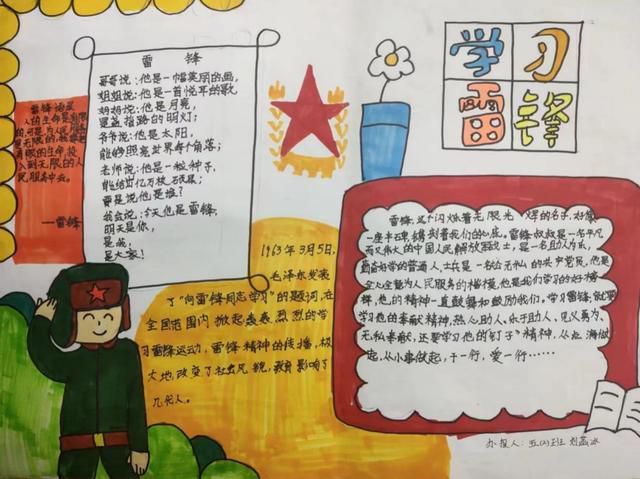 学习
雷锋
雷 锋
哥哥说:他是一幅美丽的画,
姐姐说:他是一首悦耳的歌,
妈妈说:他是月亮,
是盏指路的明灯;
爷爷说:他是太阳,
能够照亮世界每个角落;
老师说:他是一粒种子,
能结出亿万枚硕果;
雷是说他是谁?
我会说:今天他是雷锋,
明天是你,
是我,
是大家!
雷锋语录
人的生命是有限
的,可是,为人民服务
是无限的,我要把
有限的生命,投
入到无限的人
民服务中去。
—雷锋
1963年3月5日,
毛泽东发表
了“向雷锋同志学习”的题词,在
全国范围内掀起轰轰烈烈的学
习雷锋运动,雷锋精神的传播,极
大地改变了社会风貌,教育影响了
几代人。
雷锋,这个闪烁着无限光辉的名字,好像
一座丰碑,镌刻着我们的心底。雷锋叔叔是一名平凡
而又伟大的中国人民解放军战士,是一名助人为乐,
勤奋好学的普通人,士兵是一名公无私的共产党员,他是
全心全意为人民服务的楷模,他是我们学习的好榜
样,他的精神一直鼓舞和鼓励我们,学习雷锋,就要
学习他的奉献精神,热心助人、乐于助人、见义勇为、
无私奉献,还要学习他的“钉子”精神,从点滴做
起,从小事做起,干一行,爱一行……
办报人:五(2)班 刘